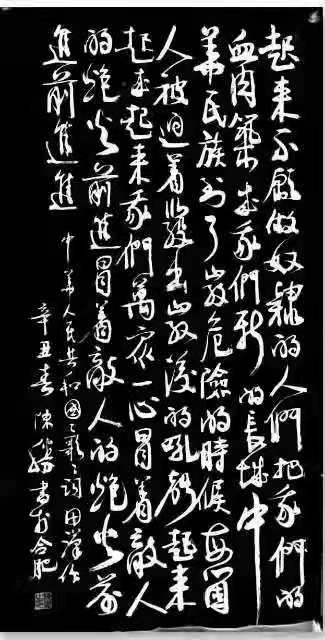 起来不願做奴隸的人們把我們的
血肉築成我們新的長城中
華民族到了最危險的時候每個
人被迫着發出最後的吼聲起来
起来起来我們萬衆一心冒着敵人
的炮火前進冒着敵人的炮火前
進前進進
中華人民共和國々歌々詞田漢作
辛丑春陳書於合肥